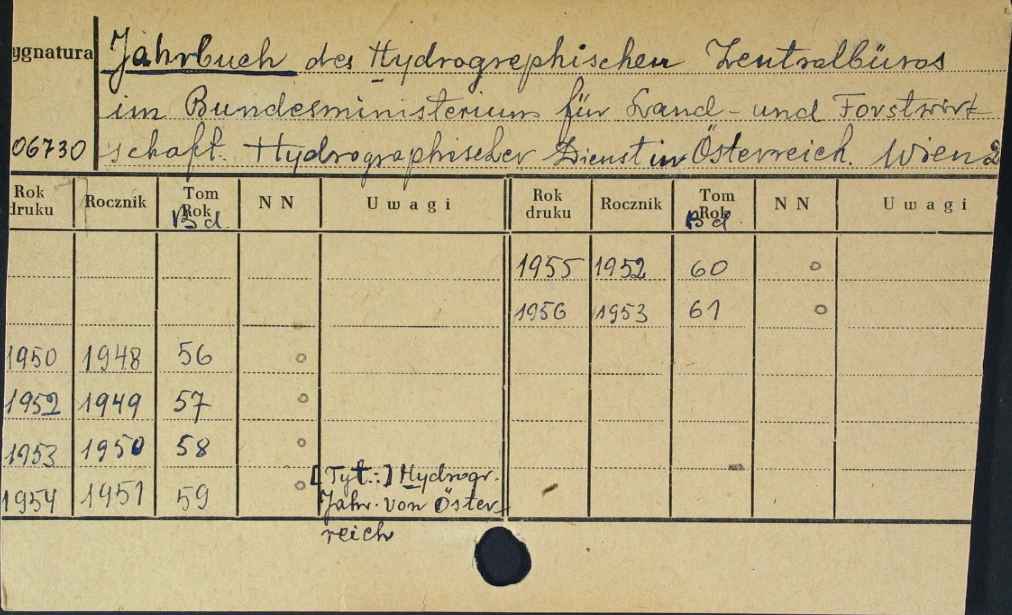 ygnatura Jahrbuch des Hydrographischen Zentralbüros
im Bundesministerium für Land- und Forstwirt
06730 schaft. Hydrographischer Dienst in Österreich. Wien 2
Rok druku Rocznik Tom Rok Bd. N N Uwagi Rok druku Rocznik Tom Rok Bd. N N Uwagi
1955 1952 60 o
1956 1953 61 o
1950 1948 56 o
1952 1949 57 o
1953 1950 58 o
1954 1951 59 o [Tyt.:] Hydrogr.
Jahr. von Öster-
reich